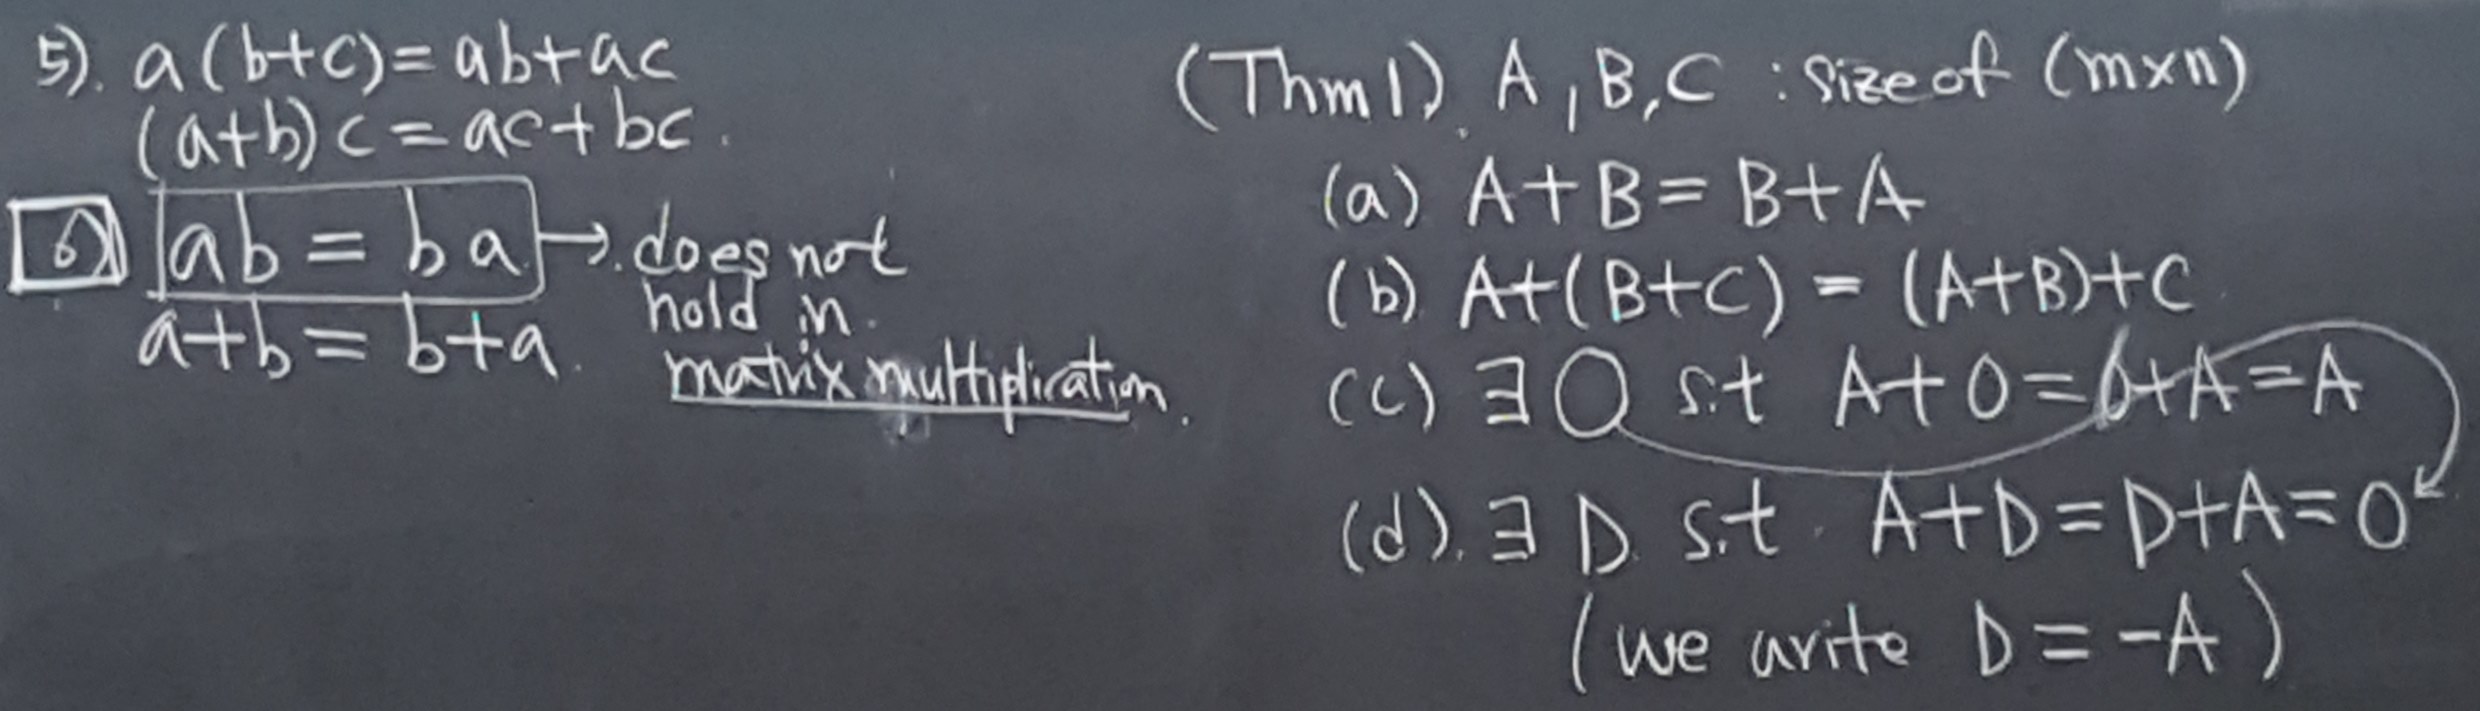 5). a(b+c)=ab+ac
(a+b)c=ac+bc.
6) ab=ba → does not
hold in
matrix multiplication.
a+b=b+a.
(Thm1). A, B, C : size of (m×n)
(a) A+B=B+A
(b) A+(B+C)=(A+B)+C
(c) ∃ O s.t A+O=O+A=A
(d). ∃ D s.t. A+D=D+A=O
(we write D=-A)